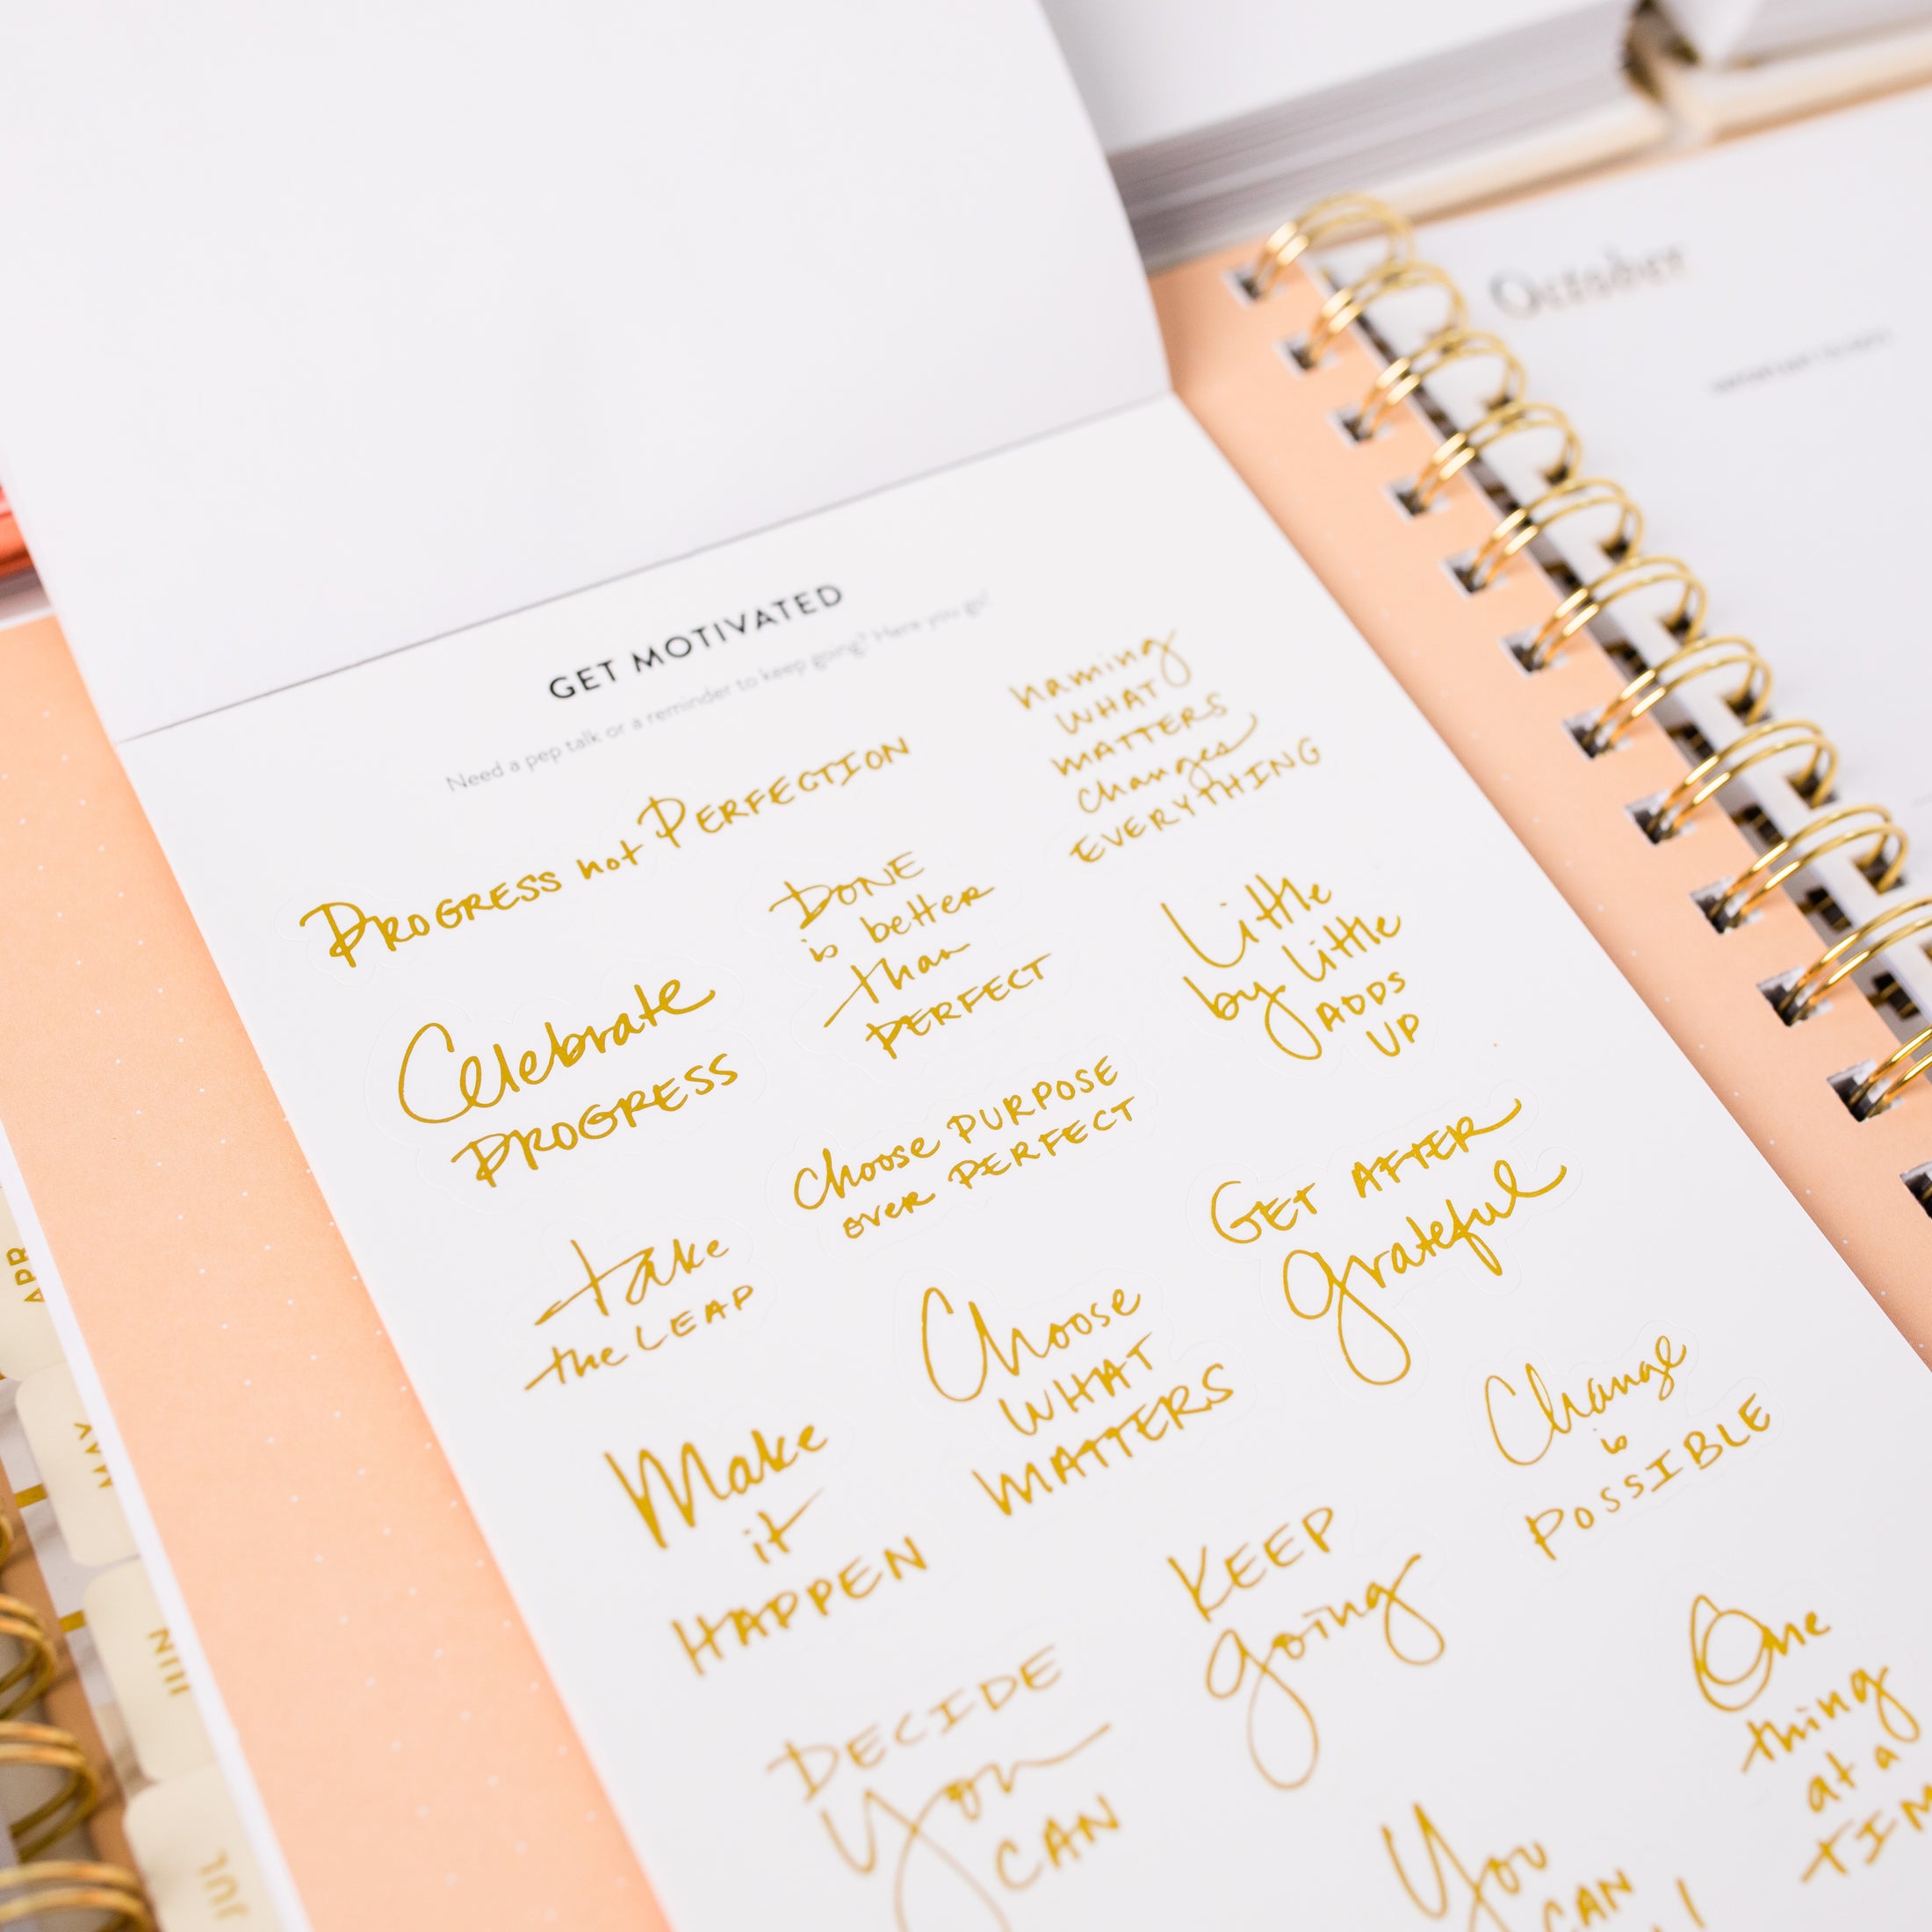 October
GET MOTIVATED
Need a pep talk or a reminder to keep going? Here you go!
PROGRESS not PERFECTION
naming
WHAT
MATTERS
changes
EVERYTHING
DONE
is better
than
PERFECT
Little
by little
ADDS
UP
Celebrate
PROGRESS
Choose PURPOSE
OVER PERFECT
GET AFTER
grateful
take
the LEAP
Choose
WHAT
MATTERS
Change
is
POSSIBLE
Make
it
HAPPEN
KEEP
going
One
thing
at a
DECIDE
You
CAN
You
CAN
APR
MAY
JUN
JUL